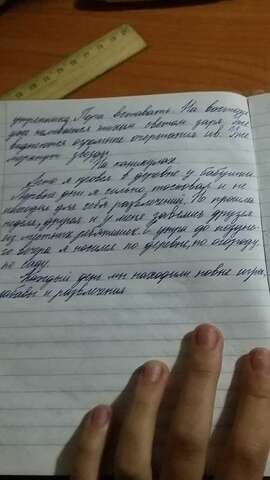 утренника. Пора вставать. На востоке
уже наливается тихим светом заря, уже
виднеются очертания ив. Уже
меркнут звёзды.
На каникулах
Лето я провёл в деревне у бабушки.
Первые дни я сильно тосковал и не
находил для себя развлечений. Но прошла
неделя, другая и у меня завелись друзья
из местных ребятишек. С утра до поздне-
го вечера я носился по деревне, по огороду
по саду.
Каждый день мы находили новые игры,
забавы и развлечения